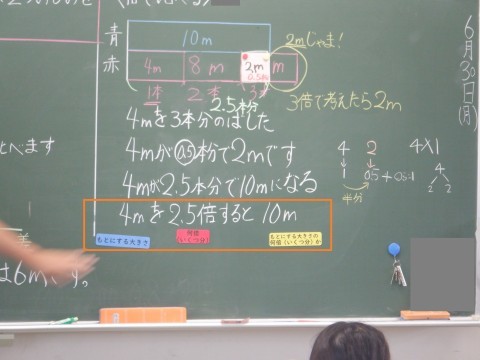 6月30日(月)
青
赤
10m
2mじゃま!
4m 8m 2m m
0.5本
1本 2本 3本
2.5本分
3倍で考えたら2m
4mを3本分のばした
4mが0.5本分で2mです
4mが2.5本分で10mになる
4mを2.5倍すると10m
もとにする大きさ
何倍(いくつ分)
もとにする大きさの何倍(いくつ分)か
4 2
1 0.5
半分
4×1
4
2 2
とべます
は6mです。